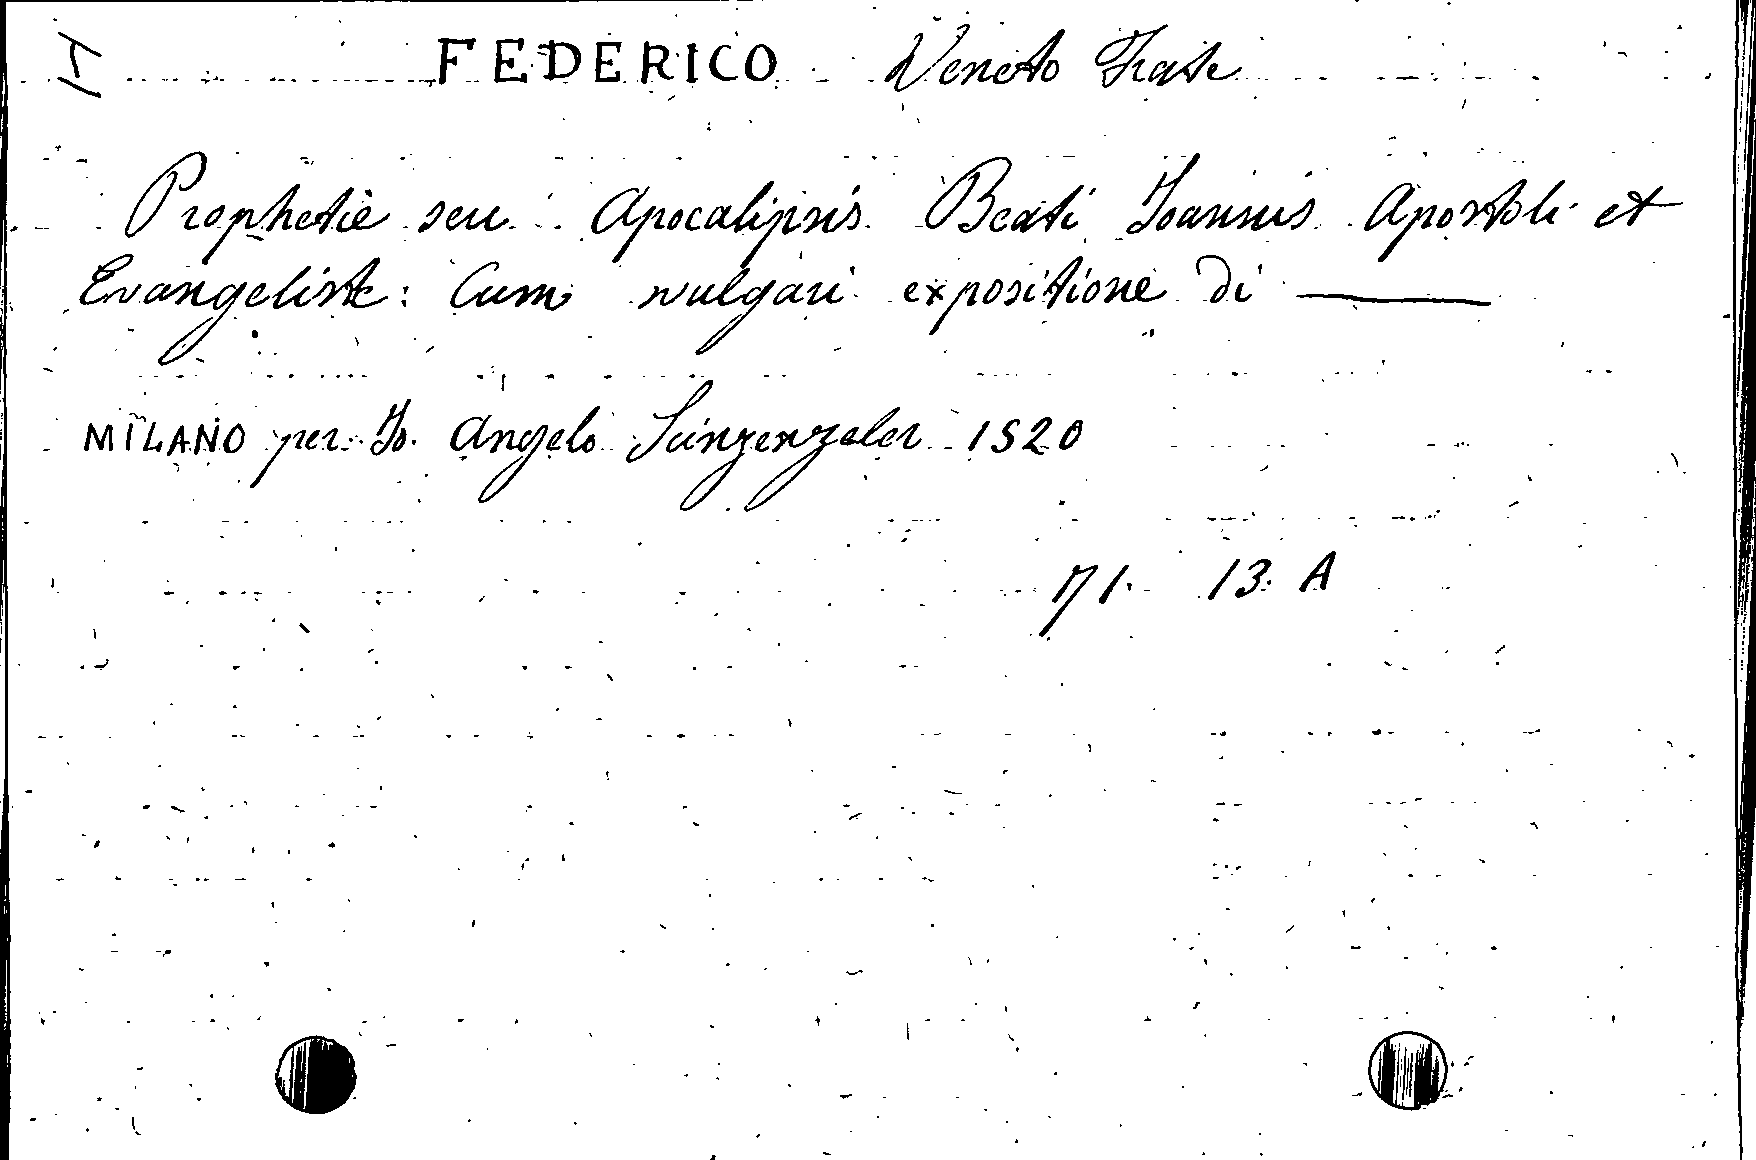 I FEDERICO Veneto Frate
Prophetie seu Apocalipsis Beati Joannis Apostoli et
Evangeliste: Cum vulgari expositione di ———
MILANO per Jo. Angelo Scinzenzeler 1520
71. 13. A